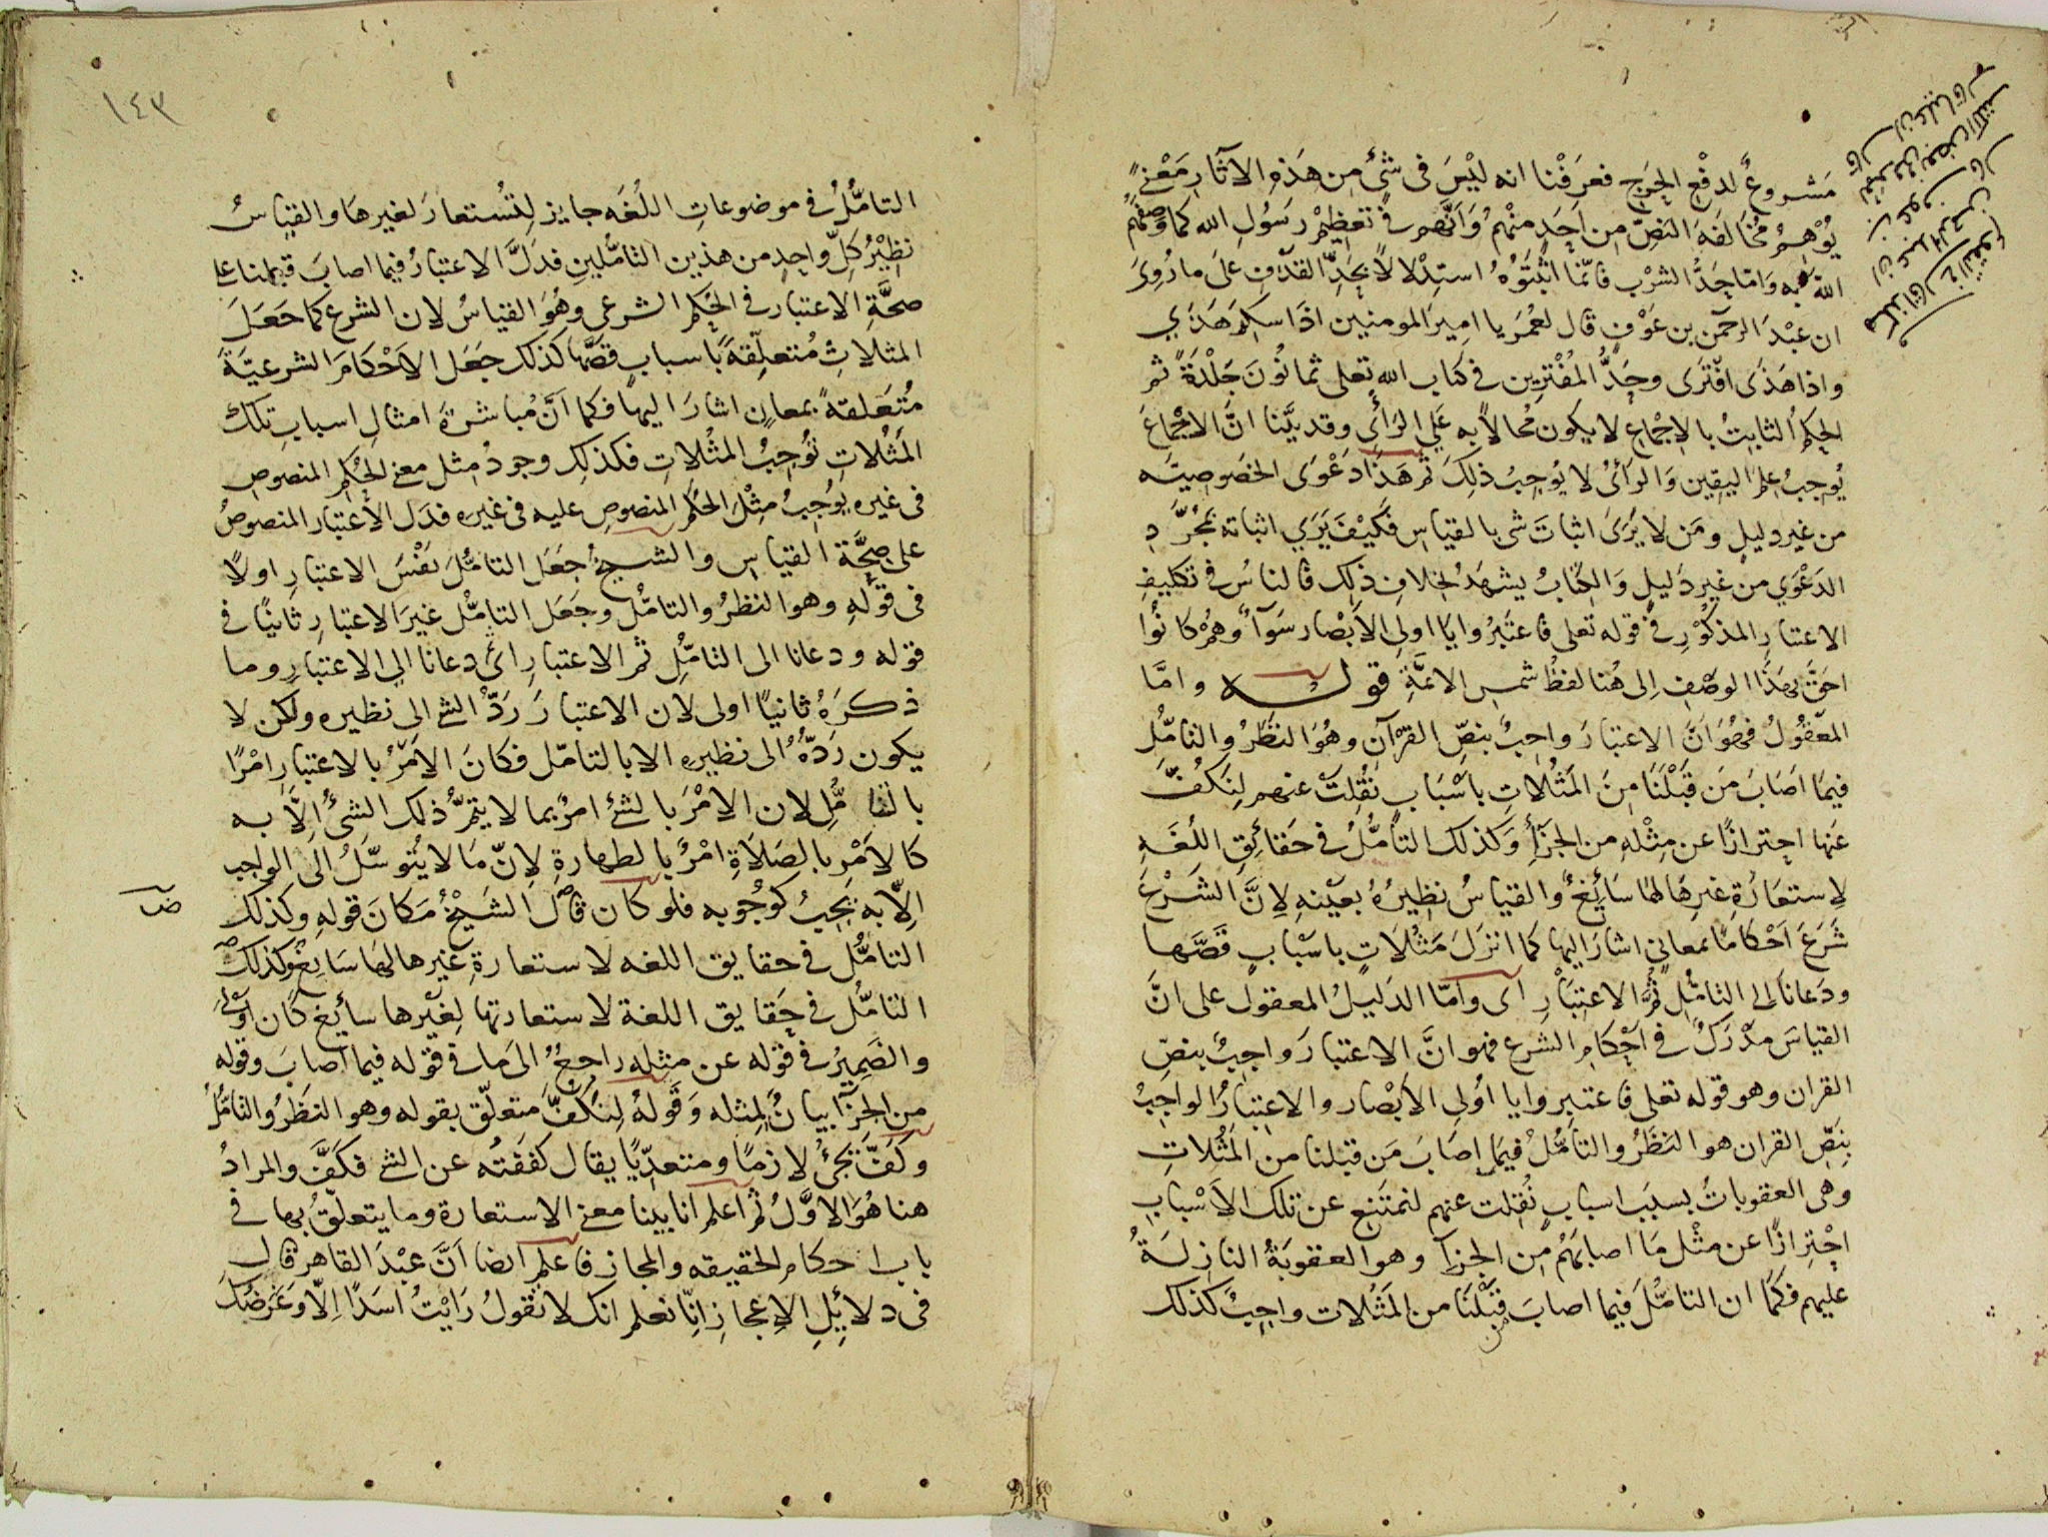 مَشروعٌ لدفْع الحَرج فعَرفْنا انه ليْسَ فى شئ من هَذهِ الآثار مَعْنىً
يُوْهِمُ مُخالفَة النصّ من اَحَدٍ منْهمُ وَاَنَّهم فى تعْظِيمْ رَسُولِ الله كما وَصَفهُم
اللهُ به وَامّا حَدُّ الشرْب فانّما اثبَتوُهُ استِدْلالاً بحَدِّ القذْفِ علىَ ما رُوىَ
ان عبْدَ الرحمن بن عَوْفٍ قال لعُمَرَ يا اميرَ المومنين اذا سكِرَ هَذَي
واذا هَذَى افْترَى وحَدُّ المُفْترِين فى كتاب اللهِ تعلى ثمانُونَ جَلْدَةً ثم
الحكمُ الثابتُ بالاِجْماع لا يكون مُحالاً به عَلي الرَأىِ وقد بيَّنا انَّ الاِجْماعَ
يُوجبُ علمَ اليقين وَالرأىُ لا يُوجبُ ذلِكَ ثم هَذَا دَعْوَى الخصُوصِيَّة
من غير دليلٍ ومَن لا يَرَىَ اثباتَ شئ بالقياس فكيْفَ يَرَي اثباته بمُجرَّدِ
الدَعْوَي من غير دَليلٍ وَالكتابُ يشهَدُ بخلافِ ذلِك فالناسُ فى تكليفِ
الاعتبار المذكوْرِ فى قوله تعلى فاعتَبرُوا يا اولى الاَبْصار سَوَآءٌ وَهُمْ كانوُا
احَقَّ بهَذَا الوصْفِ اِلى هُنا لفظُ شمسِ الائمَّةِ قوله وامَّا
المَعْقوُلُ فهُوَ اَنَّ الاعتبارَ واجبٌ بنصِّ القرْآنِ وهُوَ النظرُ والتامُّل
فيمَا اَصَابَ مَن قبْلَنَا مِنَ المَثُلاتِ باَسْبَابٍ نُقِلتْ عنهم لِنَكفَّ
عَنها احترازًا عن مِثْلهِ من الجزآءِ وَكذلك التاَمُّلُ فى حَقائِقِ اللُغَهِ
لاِستعَارَةِ غيرِهَا لهَا سَائِغٌ والقياسُ نظيرُهُ بعيْنهِ لاِنَّ الشَرْعَ
شَرَعَ اَحْكامًا بمعانى اشارَ اليها كما انزَلَ مَثُلاَتٍ باسْبابٍ قَصَّها
ودَعانا الى التامُّلِ ثُمَّ الاعتِبَارِ اى وامّا الدَليلُ المعقول على انَّ
القياسَ مَدْرَكٌ فى اَحْكامِ الشرع فهو انَّ الاعتبارَ واجبٌ بنصِّ
القران وهو قوله تعلى فاعتبروا يا اُولى الاَبْصار والاعتبَارُ الواجبُ
بِنَصِّ القران هو النَظَرُ والتامُّلُ فيمَا اصَابَ مَن قبلنا من المَثُلاتِ
وهى العقوباتُ بسبَب اسبابٍ نُقِلت عنهم لنمتَنِع عن تلك الاَسْبابِ
احْتِرازًا عن مثْل مَا اصابَهُمْ مِن الجزآء وهو العقوبَةُ النازِلَةُ
عليهم فكمَا ان التامُّلَ فيما اصابَ من قبْلَنَا من المَثُلات واجبٌ كذلك
١٤٣
التامُّلُ فى موضوعاتِ اللُغَه جايز لِتُسْتعارَ لغيرهَا والقياسُ
نظِيْرُ كلِّ واحِدٍ من هذين التامُّلينِ فدَلَّ الاعتبارُ فيما اصابَ قبلنا على
صحَّةِ الاعتبار فى الحُكم الشرعى وهُوَ القياسُ لان الشرع كما جَعَلَ
المثلاتِ مُتعلّقِةً باسبابٍ قصَّها كذلك جَعَل الاَحْكامَ الشرعيَّةَ
مُتَعَلقةً بمعانٍ اشارَ اليها فكما اَنَّ مُباشرةَ امثالِ اسبابِ تلك
المَثُلاتِ تُوْجبُ المثُلاتِ فكذلِك وجودُ مِثل معنى الحُكمِ المنصوص
فى غيره يوُجبُ مثِلَ الحُكم المنصوصِ عليه فى غيره فدَل الاعتبار المنصوصُ
على صِحَّة القياس والشيخُ جَعَل التامُّلَ نفْسَ الاعتبارِ اولاً
فى قوْلِهِ وهو النظرُ والتامُّل وجَعَل التامُّل غيرَ الاعتبارِ ثانيًا فى
قوله ودعانا الى التامُّلِ ثم الاعتبارِ اىْ دعانا الى الاعتبارِ وما
ذكرَهُ ثانيًا اولى لان الاعتبارَ رَدُّ الشئ الى نظيره ولكن لا
يكون رَدّهُ الى نظيرهِ الا بالتامّل فكانَ الاَمْرُ بالاعتبارِ امْرًا
بالتامُّلِ لان الامْرَ بالشئ امرٌ بما لا يتمُّ ذلك الشئُ اِلاَّ به
كالاَمْرِ بالصَلاَةِ امْرٌ بالطهارةِ لاِنّ مَا لا يُتوسّلُ الى الواجب
اِلاّ به يَجِبُ كوُجُوبه فلو كان قال الشَيْخُ مَكانَ قولهِ وكذلك
التامُّل فى حقايق اللغه لاستعارةِ غيرها لهَا سَايغٌ وكذلك
التامُّل فى حَقايق اللغة لاستعارتها لغَيْرها سأيغ كان اَوْلَىَ
والضَمِيرُ فى قوْله عن مثله راجعٌ الىَ ما فى قوْله فيما اَصابَ وقوله
مِن الجزآءِ بيانٌ لمِثله وَقوَلهُ لِنَكُفَّ متعلّق بقوله وهو النظرُ والتامُّلُ
وكفَّ يَجئُ لازمًا ومتعدّيًا يقال كفَفْتُه عن الشئ فكفَّ والمرادُ
هنا هُوَ الاوَّلُ ثُم اعلم انا بيّنا معنى الاستعارة وما يتعلّقُ بها فى
باب احكام الحقيقه والمجاز فاعلم ايضا اَنَّ عَبْدَ القاهر قال
فى دلائِلِ الاِعجازِ انّا نعلم انك لا تقولُ رَايْتُ اَسَدًا اِلاّ وغَرَضُكَ